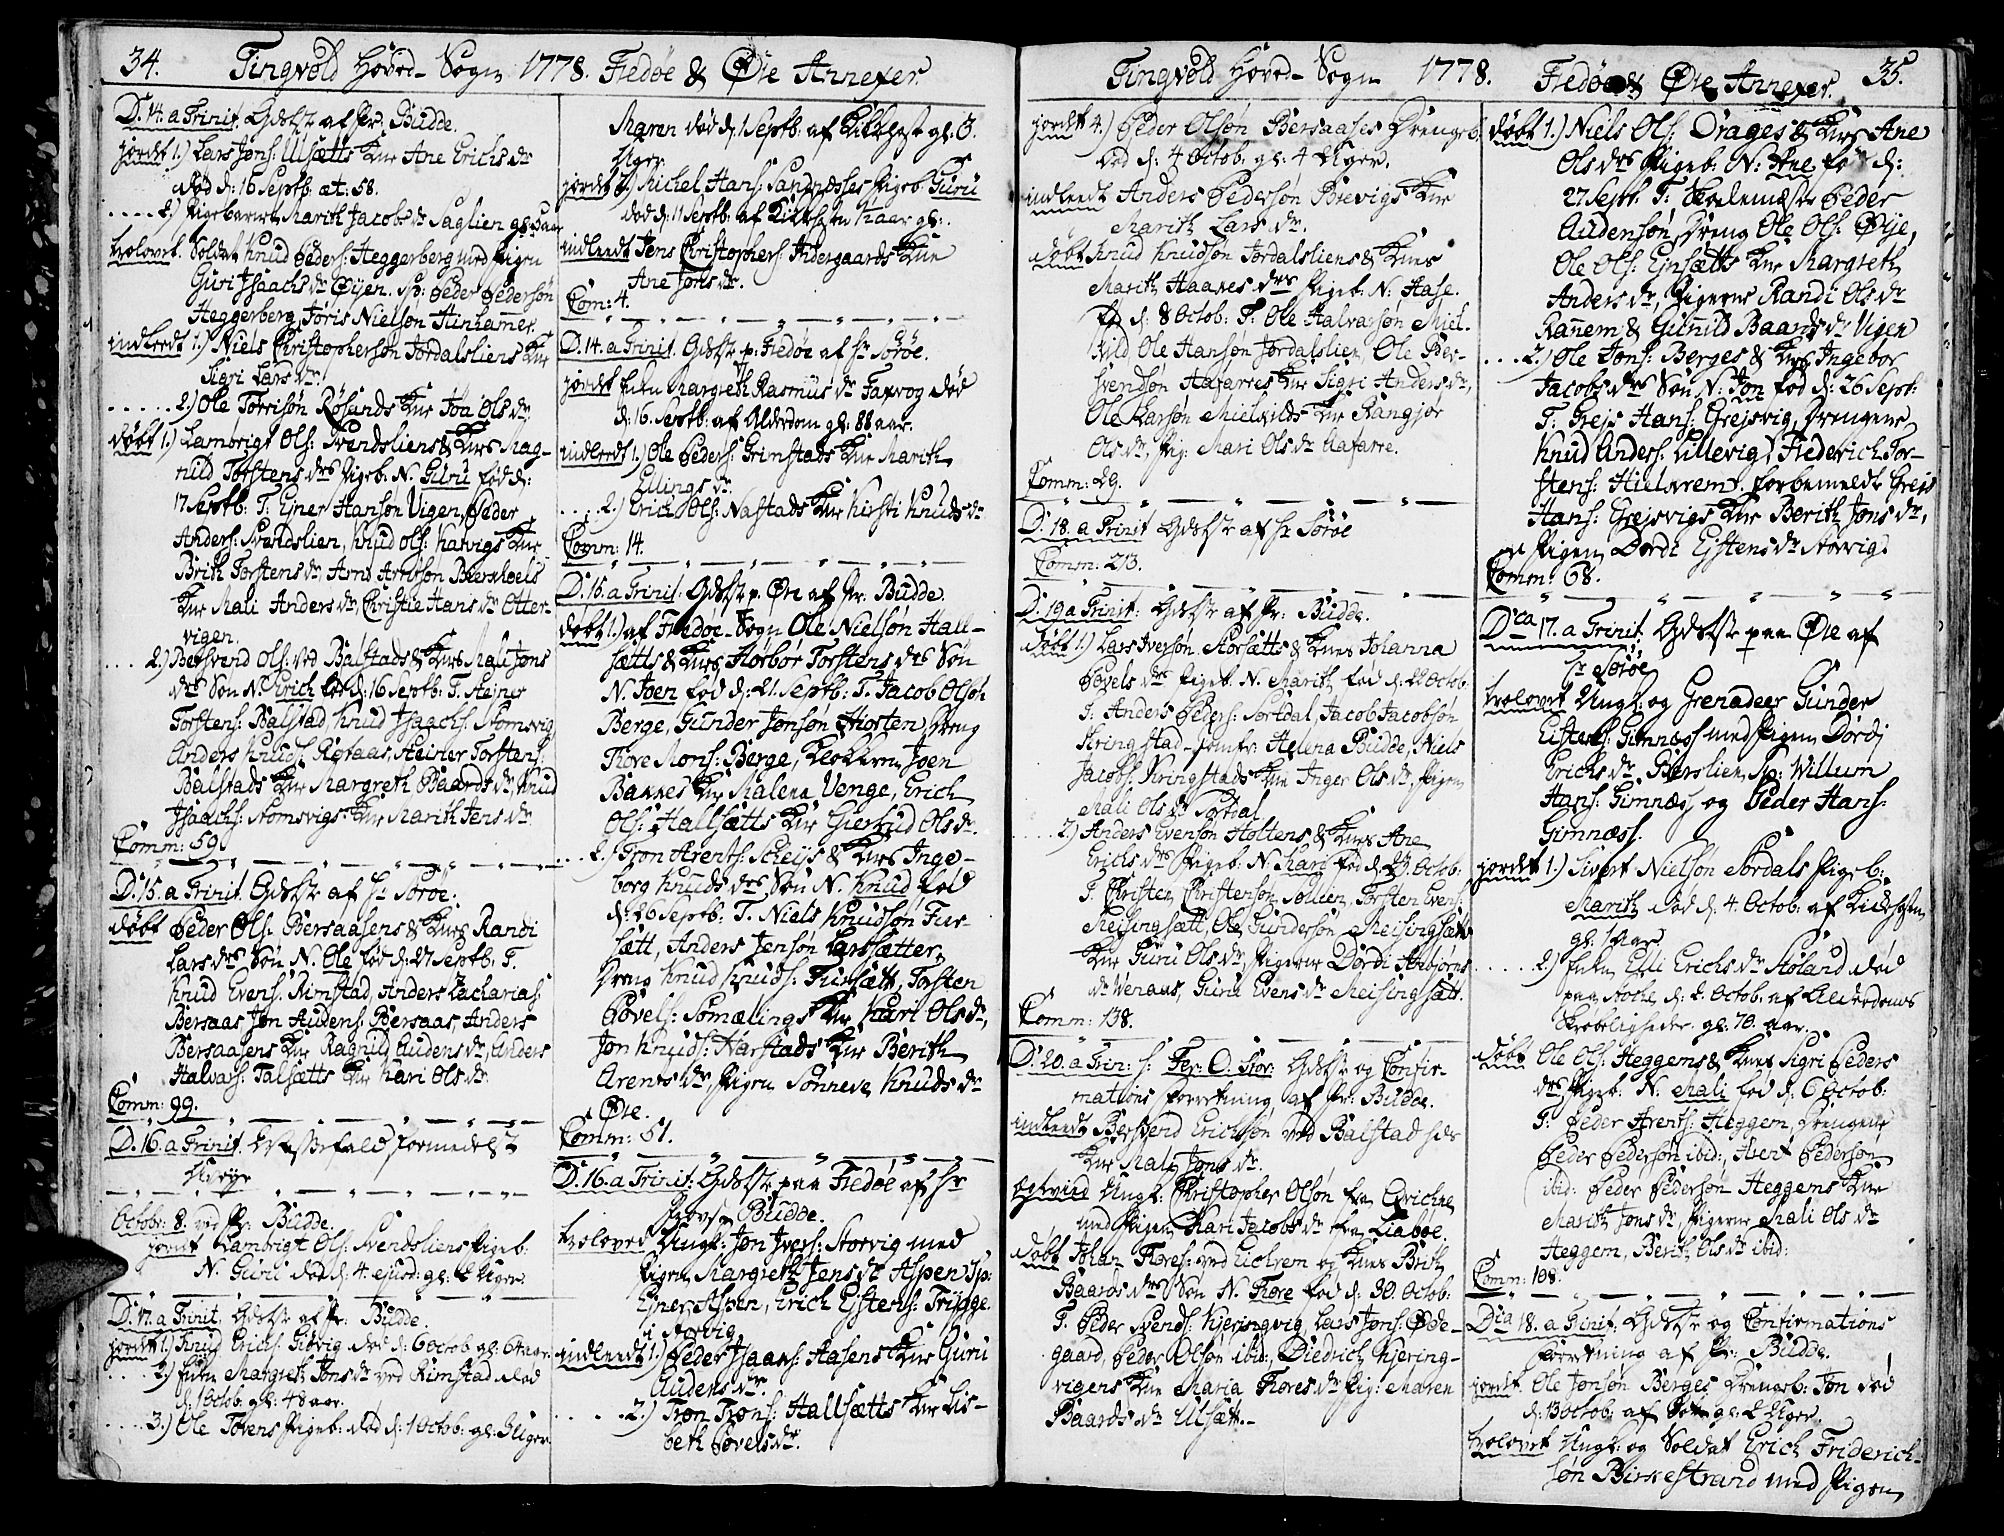 34. Tingvold Hoved-Sogn 1778. Fredøe & Øie Annexer.
D. 14. a Trinit. Gdstr af Pr. Budde.
jordt 1.) Lars Jons: Ulsætts Kne Ane Erichs dr
død d: 16 Septb. æt: 58.
.... 2.) Pigebarnet Marith Jacobs dr Saglien gl:
trolovet. Soldat Knud Peders: Heggerberg med Pigen
Guri Isaachs dr Øijen. Sp: Peder Pedersøn
Heggerberg, Joris Nielsøn Hinhammer.
indleedt 1.) Niels Christophersøn Jordalsliens Kne
Sigri Lars dr.
...... 2.) Ole Torrisøn Røsands Kne Joa Ols dr.
døbt 1.) Lambrigt Ols: Svendsliens & Knes Mag-
nild Torstens drs Pigeb. N. Guru fød d:
17 Septb: T. Ejner Hansøn Vigen, Peder
Anders: Svendslien, Knud Ols: Hatvigs Kne
Brith Torstens dr, Arnt Arntsøn Bierkhoels
Kne Mali Anders dr, Christie Hans dr Otter-
vigen.
.... 2.) Bersvend Ols: ved Balstads & Knes Mali Jons
drs Søn N. Erich fød d: 16 Septb: T. Stejner
Torstens: Balstad, Knud Isaachs: Stomsvig,
Anders Knuds: Røsaas, Steiner Torstens:
Balstads Kne Margreth Baards dr, Knud
Isaachs: Stomsvigs Kne Marith Jens dr.
Comm: 59.
D. 15. a Trinit. Gdstr af Hr Sorøe.
døbt Peder Ols: Bersaasens & Knes Randi
Lars drs Søn N. Ole fød d: 27 Septb: T.
Knud Evens: Rimstad, Anders Zacharias:
Bersaas, Jon Audens: Bersaas, Anders
Bersaasens Kne Ragnild Audens dr, Anders
Halvars: Talsætts Kne Kari Ols dr.
Comm: 99.
D. 16. a Trinit. Messefald formedelst
Uveyr
Octobr: 8. ved Pr: Budde.
jordt Lambrigt Ols: Svendsliens Pigeb:
N. Guru død d: 4 ejusd: gl: 2 Uger.
D. 17. a Trinit. Gdstr af Pr: Budde.
jordt 1.) Knud Erichs: Giøvig død d: 6 Octob. gl: 64 aar.
.... 2.) Enken Margreth Jons dr ved Rimstad død
d: 1 Octob. gl: 48 aar.
.... 3.) Ole Tovens Pigeb. død d: 1 Octob: gl: 3 Uger.
Maren død d. 1 Septb. af Kikhoste gl: 3.
Uger.
jordt 2.) Michel Hans: Sandnesses Pigeb: Guru
død d: 11 Septb: af Kikhosten 1/4 aar gl:.
indleedt Jens Christophers: Indergaards Kne
Ane Jons dr.
Com: 4.
D. 14. a Trinit. Gdstr p. Fredøe af Hr Sorøe.
jordt Enken Margreth Rasmus dr Faxvog død
d: 16 Septb: af Alderdom gl: 88 aar.
indleedt 1.) Ole Peders: Grimstads Kne Marith
Ellings dr.
.... 2.) Erich Ols: Nastads Kne Kirsti Knuds dr.
Comm: 14.
D. 15. a Trinit: Gdstr p. Øre af Pr. Budde.
døbt 1.) af Fredøe-Sogn Ole Nielsøn Hall-
sætts & Knes Hørbør Torstens drs Søn
N. Joen fød d: 21. Septb: T. Jacob Olsøn
Berge, Gunder Jonsøn Hiorten, Dreng
Thore Mons: Berge, Klokkeren Joen
Bannes Kne Malena Venge, Erich
Ols: Hallsætts Kne Giertrud Ols dr.
... 2.) Tron Arents: Scheys & Knes Inge-
borg Knuds drs Søn N. Knud fød
d: 26 Septb: T. Niels Knudsøn Fur-
sætt, Anders Jensøn Larssætter,
Dreng Knud Knuds: Fursætt, Torsten
Povels: Somælings Kne Kari Ols dr,
Jon Knuds: Narstads Kne Berith
Arents dr, Pigen Sønneve Knuds dr
Øre.
Comm: 51.
D. 16. a Trinit: Gdstr paa Fredøe af Hr
Provst Budde.
troloved Ungk: Jon Ivers: Storvig med
Pigen Margreth Jens dr Aspen Sp:
Ejner Aspen, Erich Ejstens: Trygge
i Storvig
indleedt 1.) Peder Isaacs: Aasens Kne Guru
Audens dr.
...... 2.) Tron Trons: Hallsætts Kne Lis-
beth Povels dr.
Tingvold Hoved-Sogn 1778. Fredøe & Øie Annexer. 35.
jordt 4.) Peder Olsøn Bersaases Drengeb.
død d: 4 Octob: gl: 4 Uger.
indleedt Anders Pedersøn Brevigs Kne
Marith Lars dr.
døbt Knud Knudsøn Jordalsliens & Knes
Marith Haavers drs Pigeb. N. Aase.
fød d: 8 Octob: T. Ole Halvarsøn Miel-
kild, Ole Hansøn Jordalslien, Ole Ber-
svendsøn Aafarres Kne Sigri Anders dr,
Ole Larsøn Mielkilds Kne Rangjør
Ols dr, Pig: Mari Ols dr Aafarre.
Comm: 29.
D. 18. a Trinit Gdstr af Hr Sorøe
Comm: 213.
D. 19 a Trinit: Gdstr af Pr: Budde.
døbt 1.) Lars Iversøn Storsætts & Knes Johanna
Povels drs Pigeb. N. Marith fød d: 22 Octob:
T. Anders Peders: Sortdal, Jacob Jacobsøn
Kringstad, Jomfr: Helena Budde, Niels
Jacobs: Kringstads Kne Inger Ols dr, Pigen
Mali Ols dr Sortdal.
.... 2.) Anders Evensøn Holtens & Knes Ane
Erichs drs Pigeb: N. Mari fød d: 29 Octob:
T. Christen Christensøn Solien, Torsten Evens:
Meisingsætt, Ole Gundersøn Meisingsætts
Kne Guru Ols dr, Pigerne Dordi Asbjørns
dr Venaas, Guru Evens dr Meisingsætt.
Comm: 138.
D. 20. a Trin: s: Fer. O. Stor: Gdstr og Confir-
mations Forretning af Pr: Budde.
indleedt Bersvend Erichsøn ved Balstad hds
Kne Mali Jons dr.
Egteviet Ungk: Christopher Olsøn fra
med Pigen Kari Jacobs dr fra Liaboe.
døbt Johan Thores: ved Eichrem og Knes Brith
Baards drs Søn N. Thore fød d: 30. Octob:
T. Peder Svends: Kjeringvig, Lars Jons: Øde-
gaard, Peder Olsøn ibid:, Diedrich Kjering-
vigens Kne Maria Thores dr Pig: Maren
Baards dr Ulsætt.
døbt 1.) Niels Ols: Drages & Knes Ane
Ols drs Pigeb. N: Ane fød d:
27 Septb. T: Skolemester Peder
Audensøn, Dreng Ole Ols: Øije,
Ole Ols: Ejnsætts Kne Margreth
Anders dr, Pigerne Randi Ols dr
Ranem & Gunnild Baards dr Vigen
.... 2.) Ole Jons: Berges & Knes Ingebor
Jacobs drs Søn N. Jon fød d: 26 Septb:
T. Grejs Hans: Grejsvig, Drengene
Knud Anders: Lillevig, Frederich Tor-
stens: Hielkrem, forbemeldte Grejs
Hans: Grejsvigs Kne Berith Jons dr,
Pigen Dordi Ejstens dr Storvig.
Comm: 68.
Dca 17. a Trinit. Gdstr paa Øie af
Hr Sorøe
trolovet Ungk: og Grenadeer Gunder
Eistens: Gimnæss med Pigen Dordj
Erichs dr Bærslien, Sp: Willum
Hans: Gimnæss og Peder Hans:
Gimnæss.
jordt 1.) Sivert Nielsøn Sordals Pigeb:
Marith død d: 4. Octob: af Kikhosten
gl: 1 Aar
..... 2.) Enken Elli Erichs dr Høland død
paa Stokke d: 2. Octob: af Alderdoms
Skrøbeligheder. gl: 70. aar.
døbt Ole Ols: Heggems & Knes Sigri Peders
drs Pigeb: N. Mali fød d: 6 Octob:
T: Peder Arents: Heggem, Drengene
Peder Pedersøn ibid:, Arent Pedersøn
ibid: Peder Pedersøn Heggems Kne
Marith Jons dr, Pigerne Mali Ols dr
Heggem, Berith Ols dr ibid:
Comm: 108.
Dca 18. a Trinit: Gdstr og Confirmations
Forretning af Pr: Budde.
jordt. Ole Jonsøn Berges Drengeb: Jon død
d: 13 Octob: af gl: 2 Uger.
trolovet Ungk: og Soldat Erich Friderich-
søn Birkestrand med Pigen